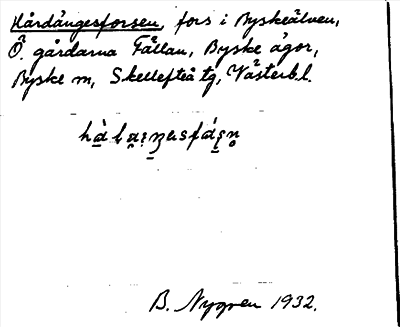 Hårdångesforsen, fors i Byskeälven,
Ö. gårdarna Fällan, Byske ägor,
Byske sn, Skellefteå tg, Västerb.l.
B. Nygren 1932.